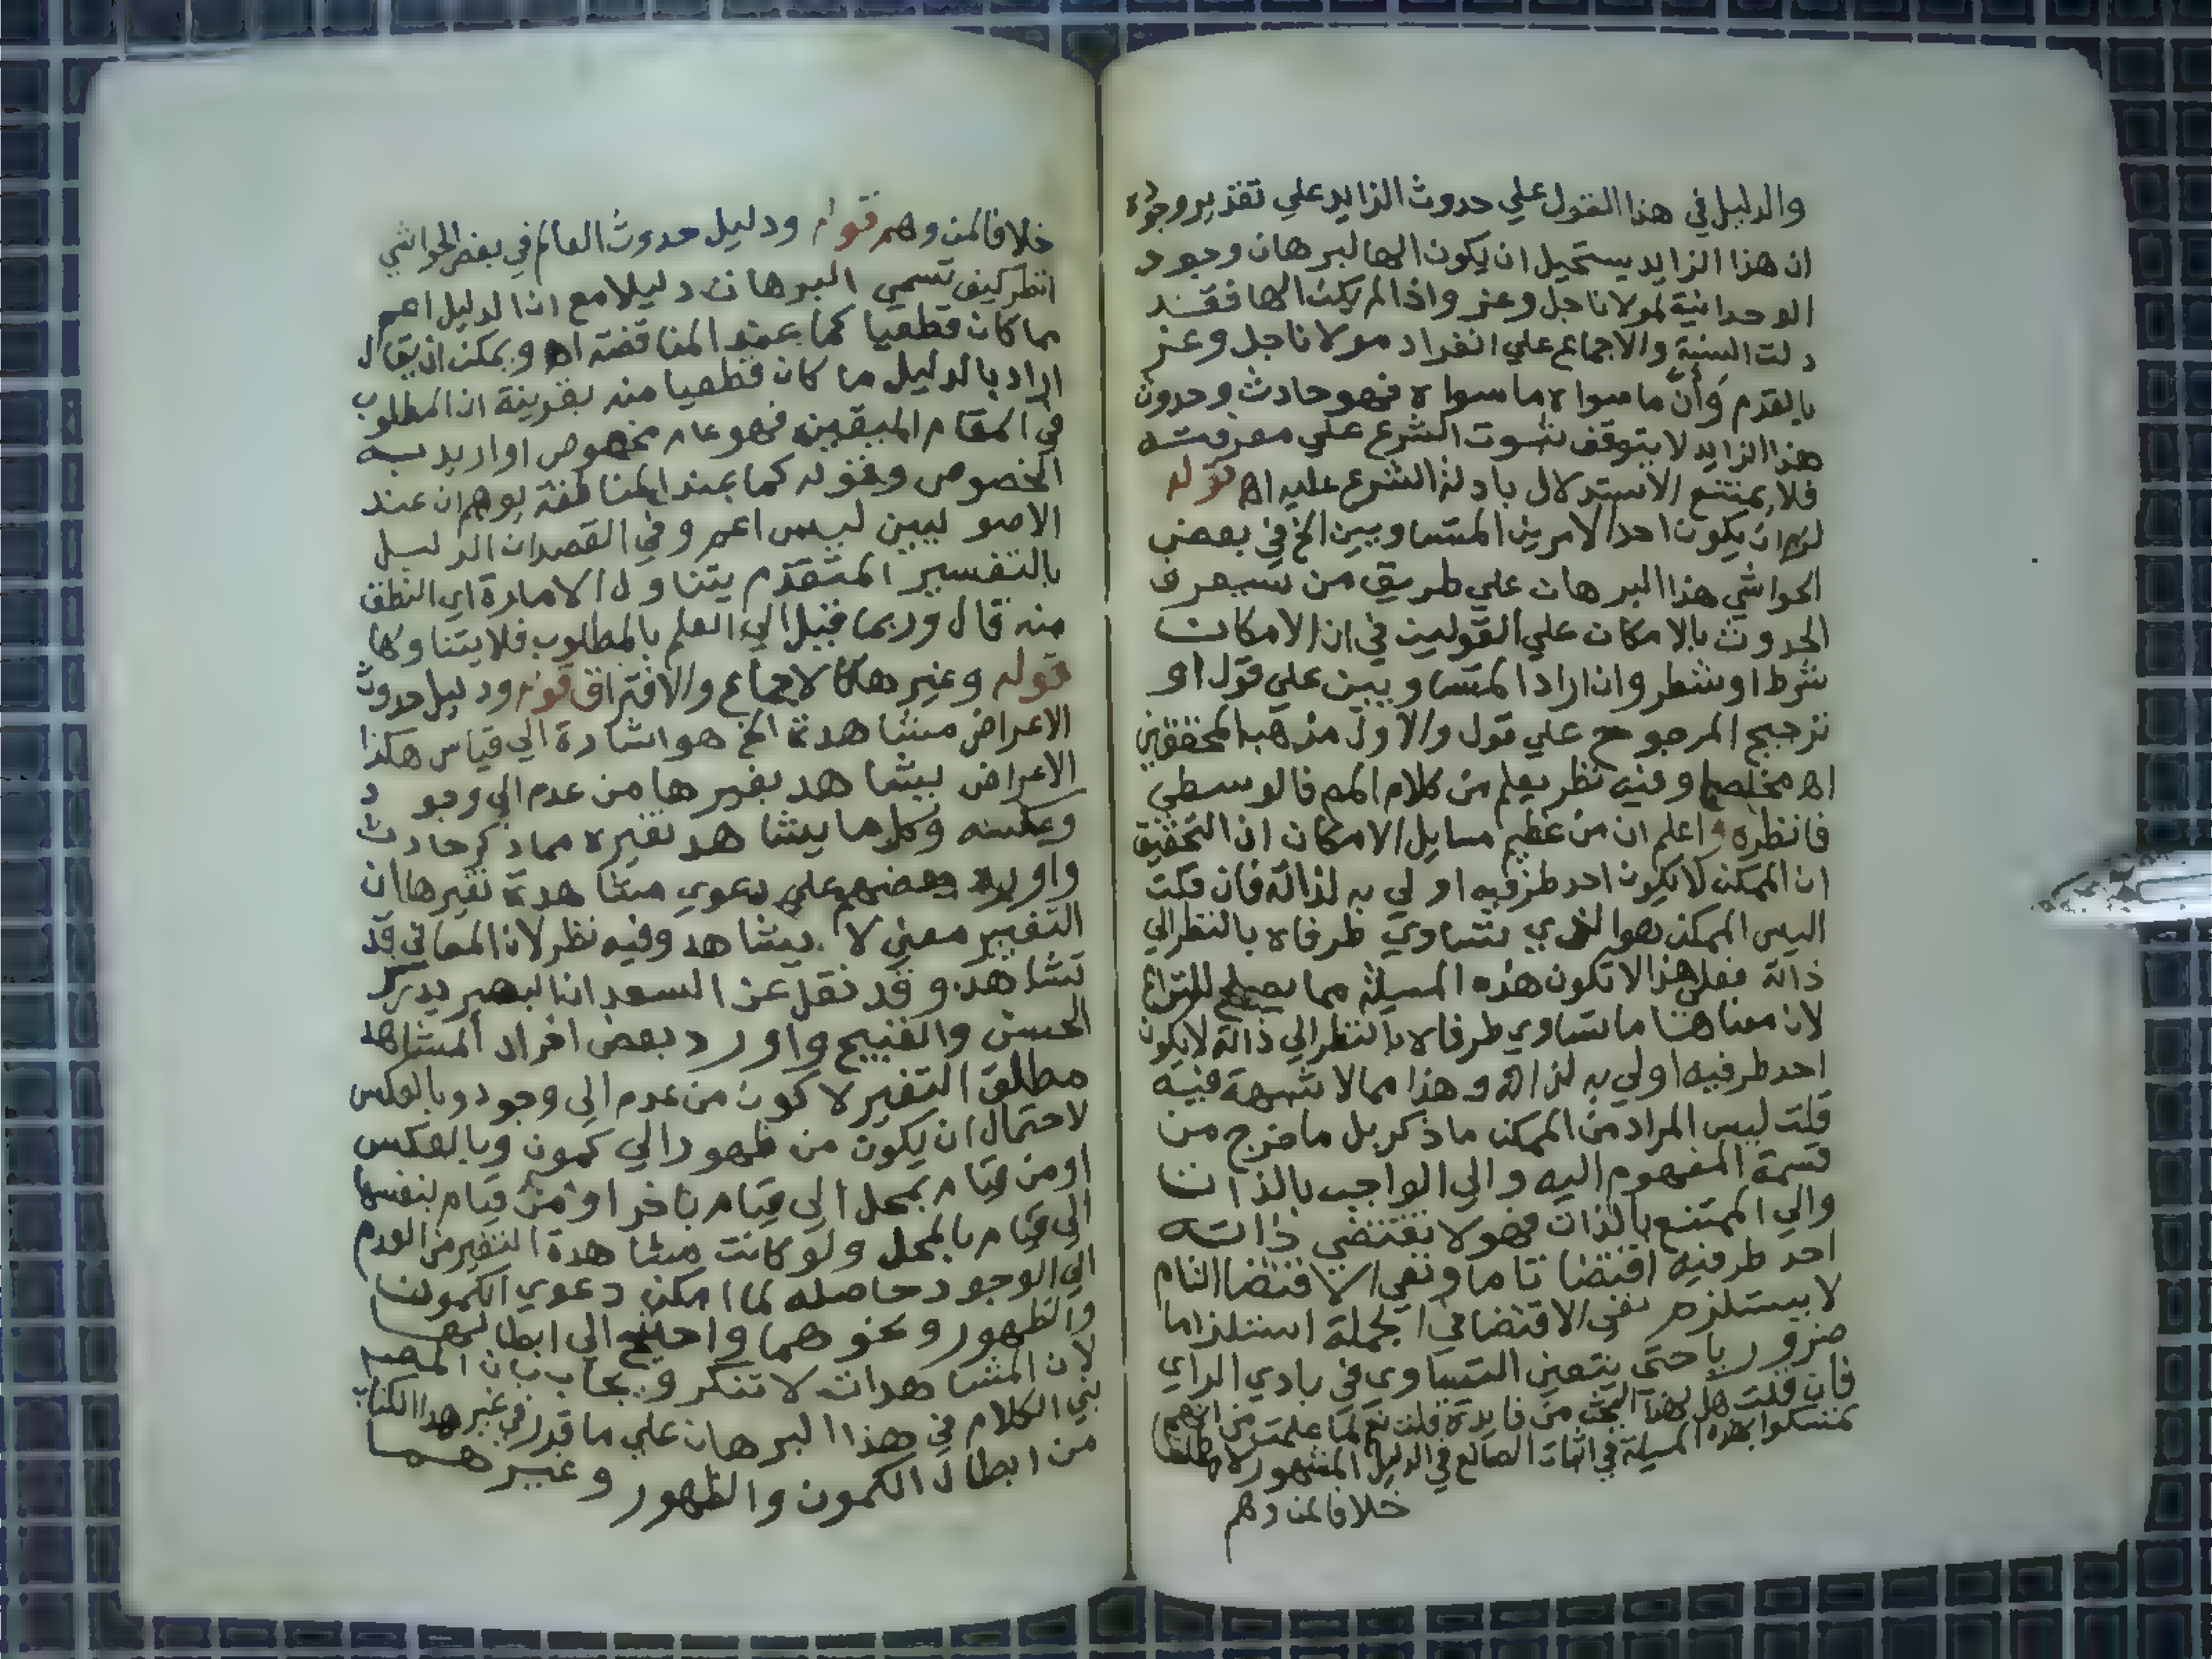 والدليل في هذا القول علي حدوث الزايد علي تقدير وجوده
ان هذا الزايد يستحيل ان يكون الها لبرهان وجود
الوحدانية لمولانا جل وعز واذا لم يكن الها فقد
دلت السنة والاجماع علي انفراد مولانا جل وعز
بالقدم وَأَنَّ ما سواه ما سواه فهو حادث وحدوث
هذا الزايد لا يتوقف ثبوت الشرع علي معرفته
فلا يمتنع الاستدلال بادلة الشرع عليه اه قوله
لزم ان يكون احد الامرين المتساويين الخ في بعض
الحواشي هذا البرهان علي طريق من سيعرف
الحدوث بالامكان علي القولين في ان الامكان
شرط او شطر وان اراد المتساويين علي قول او
ترجيح المرجوح علي قول والاول مذهب المحققين
اه مخلصا وفيه نظر يعلم من كلام المص في الوسطي
فانظره واعلم ان من عظيم مسايل الامكان ان التحقيق
ان الممكن لا يكون احد طرفيه اولي به لذاته فان قلت
اليس الممكن هو الذي يتساوي طرفاه بالنظر الي
ذاته فعلي هذا لا تكون هذه المسيلة مما يصلح للنزاع
لان معناها ما يتساوي طرفاه بالنظر الي ذاته لا يكون
احد طرفيه اولي به لذاته وهذا مما لا شبهة فيه
قلت ليس المراد من الممكن ما ذكر بل ما خرج من
قسمة المفهوم اليه والي الواجب بالذات
والي الممتنع بالذات فهو لا تقتضي ذاته
احد طرفيه اقتضا تاما ونفي الاقتضا التام
لا يستلزم نفي الاقتضا في الجملة استلزاما
ضروريا حتى يتعين التساوي في بادي الراي
فان قلت هل لهذا البحث من فايدة قلت نعم لما علمت من انهم
تمسكوا بهذه المسيلة في اثبات الصانع في الدليل المشهور لا مطلقا
خلافا لمن وهم
خلافا لمن وهم قوله ودليل حدوث العالم في بعض الحواشي
انظر كيف تسمي البرهان دليلا مع ان الدليل اعم
مما كان قطعيا كما عند المناقضة اه ويمكن ان يقال
اراد بالدليل ما كان قطعيا منه بقرينة ان المطلوب
في المقام اليقين فهو عام مخصوص او اريد به
الخصوص وقوله كما عند المناطقة يوهم ان عند
الاصوليين ليس اعم وفي القصد ان الدليل
بالتفسير المتقدم يتناول الامارة اي الظن
منه قال وربما قيل الي العلم بالمطلوب فلا يتناولها
قوله وغيرها كالاجماع والافتراق قوله ودليل حدوث
الاعراض مشاهدة الخ هو اشارة الي قياس هكذا
الاعراض يشاهد تغيرها من عدم الي وجود
وعكسه وكل ما يشاهد تغيره مما ذكر حادث
واورد بعضهم علي دعوي مشاهدة تغيرها ان
التغيير معني لا يشاهد وفيه نظر لان المعاني قد
تشاهد وقد نقل عن السعد ان البصر يدرك
الحسن والقبيح واورد بعض افراد المشاهد
مطلق التغير لا كون من عدم الي وجود وبالعكس
لاحتمال ان يكون من ظهور الي كمون وبالعكس
او من قيام بمحل الي قيام باخر او من قيام بنفسها
الي قيام بالمحل ولو كانت مشاهدة التغير من العدم
الي الوجود حاصله لما امكن دعوي الكمون
والظهور ونحوهما واحتيج الي ابطالها
لان المشاهدات لا تنكر ويجاب بان المص
بني الكلام في هذا البرهان علي ما قرر في غير هذا الكتاب
من ابطال الكمون والظهور وغيرهما